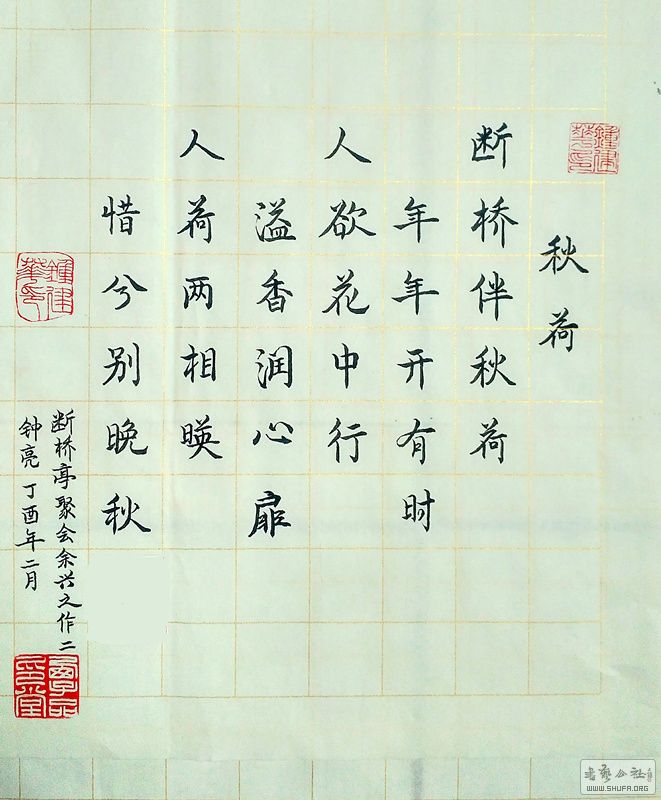 秋荷
断桥伴秋荷
年年开有时
人欲花中行
溢香润心扉
人荷两相暎
惜兮别晚秋
断桥亭聚会余兴之作二
钟亮丁酉年二月
鍾建華印
鍾建華印
書藝公社
WWW.SHUFA.ORG